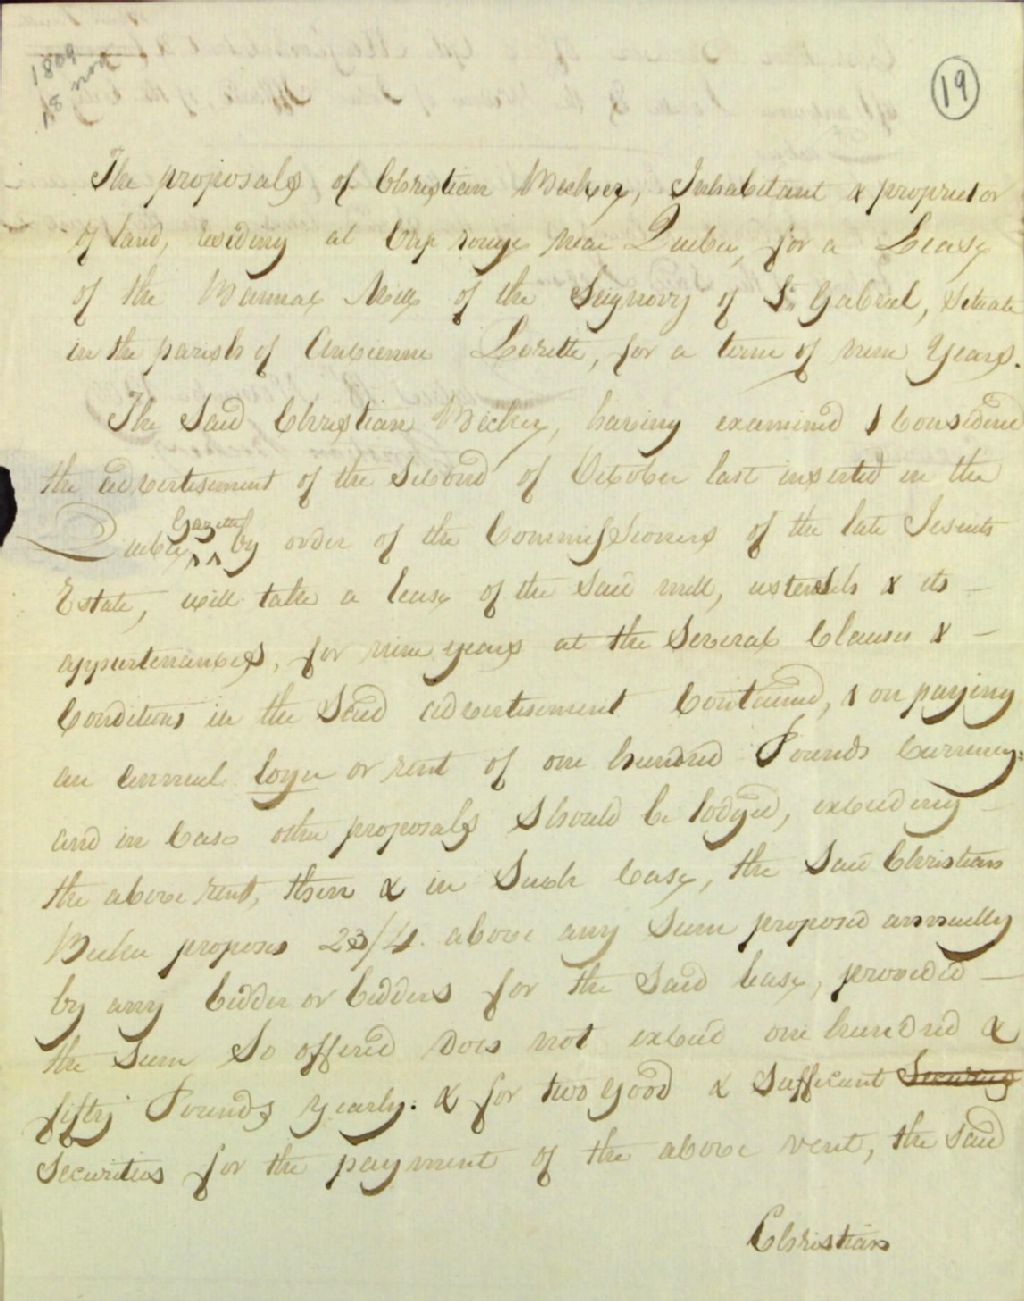 1809
18 Nov
19
The proposals of Christian Wecker, Inhabitant & proprietor
of land, residing at Cap rouge near Quebec, for a Lease
of the Bannal Mill of the Seignory of St. Gabriel, Situate
in the parish of Ancienne Lorette, for a term of nine Years.
The Said Christian having examined & Considered
the advertisement of the Second of October last inserted in the
Quebec Gazette by order of the Commissioners of the late Jesuits
Estate, will take a lease of the Said mill, ustensils & its –
appurtenances, for nine years at the Several Clauses & –
Conditions in the Said advertisement Contained, & on paying
an annual loyer or rent of one hundred Pounds Currency:
and in Case other proposals Should be lodged, exceeding –
the above rent, then & in Such Case, the Said Christian
proposes 23/4. above any Sum proposed annually
by any bidder or bidders for the Said lease, provided –
the Sum So offered does not exceed one hundred &
fifty Pounds yearly. & for two good & Sufficient
Securities for the payment of the above rent, the Said
Christian